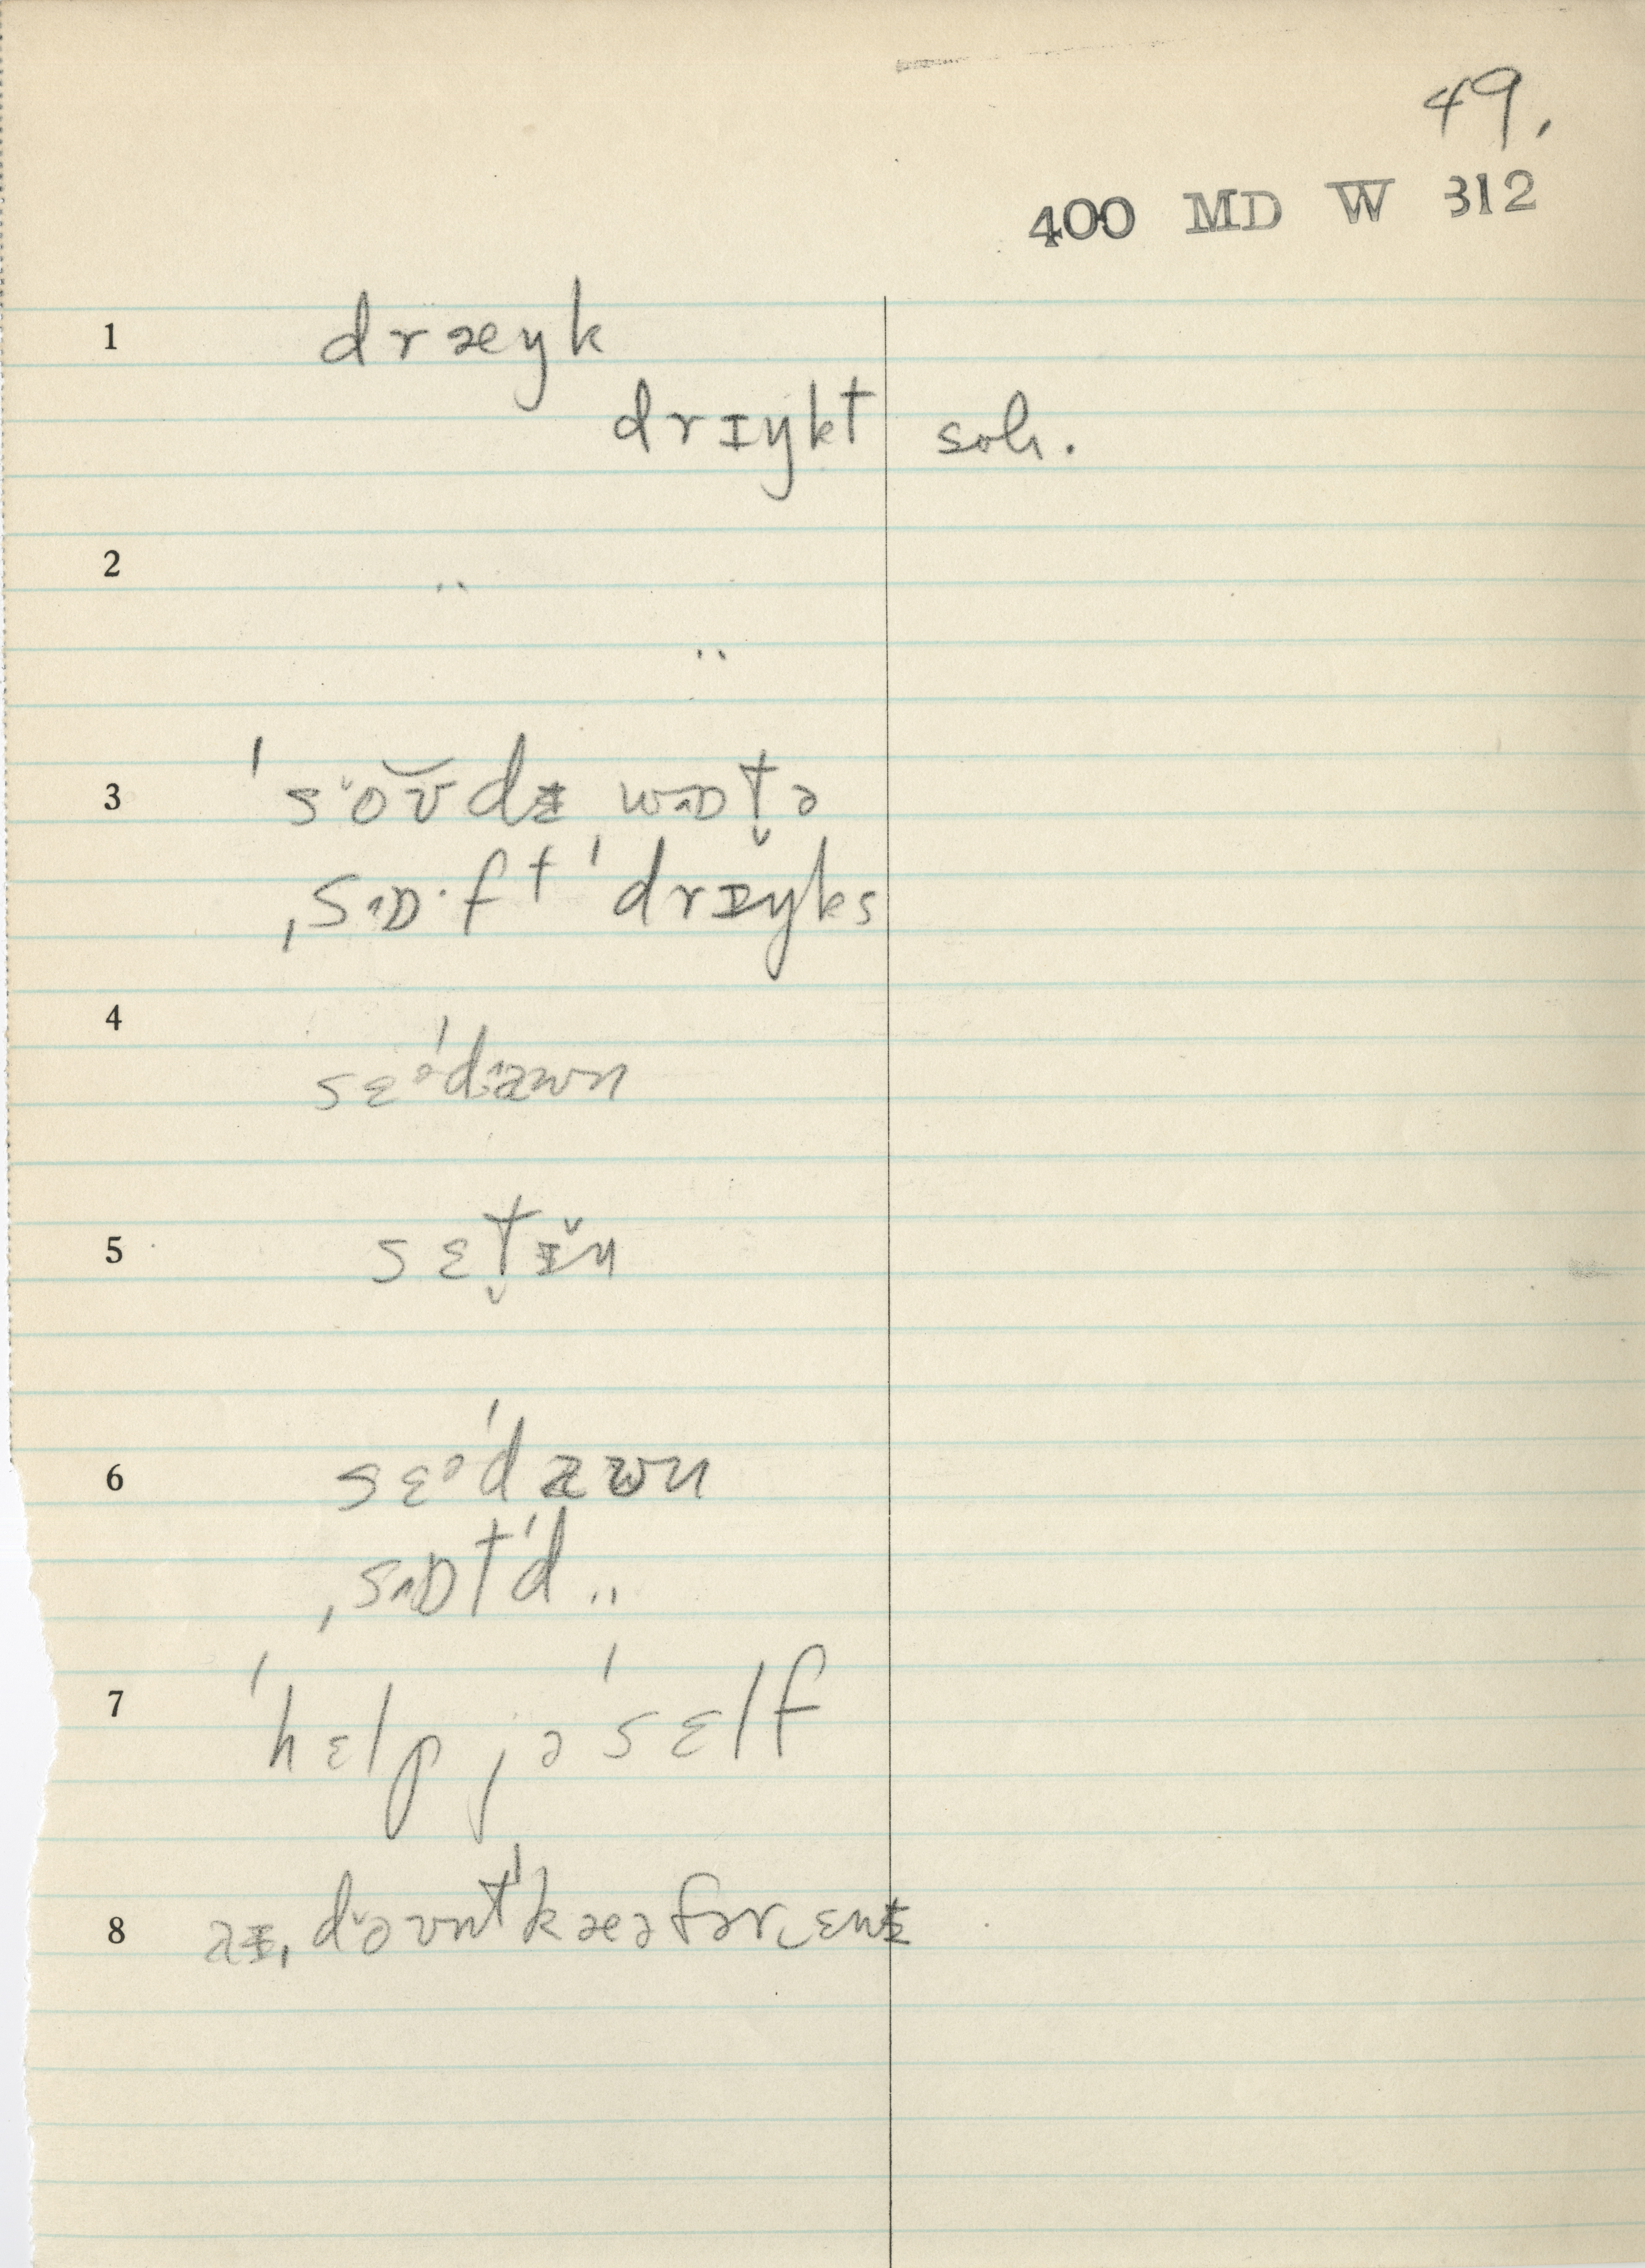 49.
400 MD W 312
1 dræŋk
drɪŋkt sah.
2 ..
..
3 ˈsˇoʊ̆dᵻ wɒt̬ə
ˌsɒ·ft ˈdrɪŋks
4 sɛᵊˈdaʊn
5 sɛt̬ɪ̆n
6 sɛᵊˈdaʊn
ˌsɒtˈd ..
7 ˈhɛlp jəˈsɛlf
8 aᵻ ˌdˇoʊntˈkæəfər‿ɛnᵻ